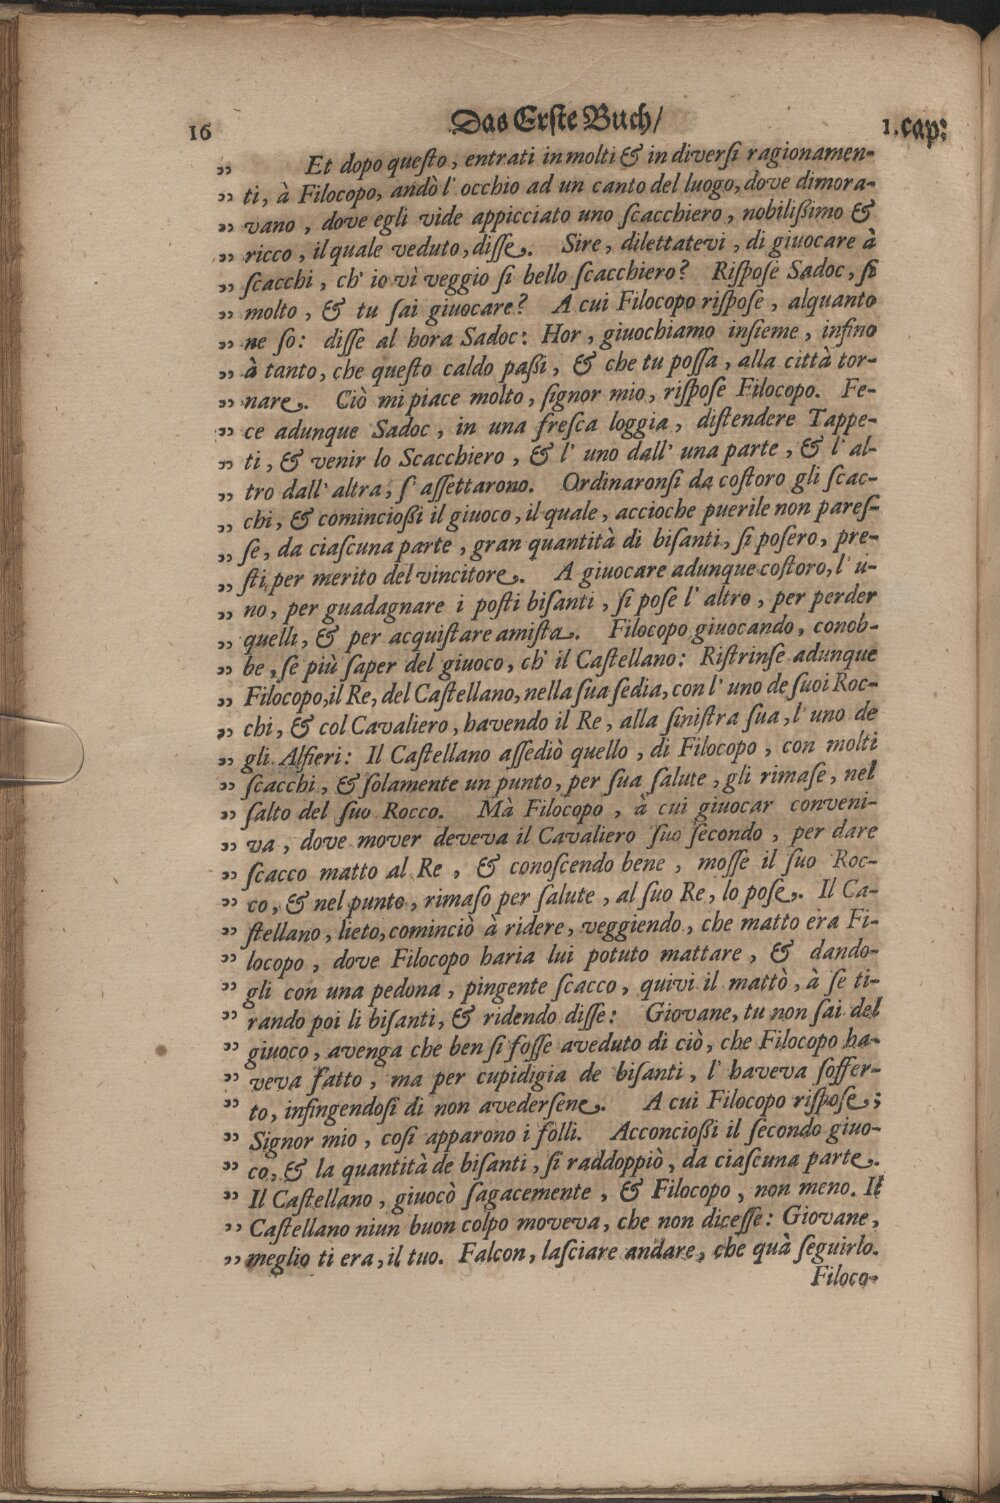 16 Das Erste Buch/ 1.cap:
„ Et dopo queſto, entrati in molti & in diverſi ragionamen-
„ ti, à Filocopo, andò l' occhio ad un canto del luogo, dove dimora-
„ vano, dove egli vide appicciato uno ſcacchiero, nobilißimo &
„ ricco, il quale veduto, diſſe. Sire, dilettatevi, di giuocare à
„ ſcacchi, ch' io vì veggio ſi bello ſcacchiero? Riſpoſe Sadoc, ſi
„ molto, & tu ſai giuocare? A cui Filocopo riſpoſe, alquanto
„ ne ſo: diſſe al hora Sadoc: Hor, giuochiamo inſieme, infino
„ à tanto, che queſto caldo paßi, & che tu poſſa, alla città tor-
„ nare. Ciò mi piace molto, ſignor mio, riſpoſe Filocopo. Fe-
„ ce adunque Sadoc, in una freſca loggia, diſtendere Tappe-
„ ti, & venir lo Scacchiero, & l' uno dall' una parte, & l' al-
„ tro dall' altra, ſ' aſſettarono. Ordinaronſi da coſtoro gli ſcac-
„ chi, & comincioßi il giuoco, il quale, accioche puerile non pareſ-
„ ſe, da ciaſcuna parte, gran quantità di biſanti, ſi poſero, pre-
„ ſti per merito del vincitore. A giuocare adunque coſtoro, l' u-
„ no, per guadagnare i poſti biſanti, ſi poſe l' altro, per perder
„ quelli, & per acquiſtare amiſta. Filocopo giuocando, conob-
„ be, ſe più ſaper del giuoco, ch' il Caſtellano: Riſtrinſe adunque
„ Filocopo, il Re, del Caſtellano, nella ſua ſedia, con l' uno de ſuoi Roc-
„ chi, & col Cavaliero, havendo il Re, alla ſiniſtra ſua, l' uno de
„ gli Alfieri: Il Caſtellano aſſediò quello, di Filocopo, con molti
„ ſcacchi, & ſolamente un punto, per ſua ſalute, gli rimaſe, nel
„ ſalto del ſuo Rocco. Mà Filocopo, à cui giuocar conveni-
„ va, dove mover deveva il Cavaliero ſuo ſecondo, per dare
„ ſcacco matto al Re, & conoſcendo bene, moſſe il ſuo Roc-
„ co, & nel punto, rimaſo per ſalute, al ſuo Re, lo poſe,. Il Ca-
„ ſtellano, lieto, cominciò à ridere, veggiendo, che matto era Fi-
„ locopo, dove Filocopo haria lui potuto mattare, & dando-
„ gli con una pedona, pingente ſcacco, quivi il mattò, à ſe ti-
„ rando poi li biſanti, & ridendo diſſe: Giovane, tu non ſai del
„ giuoco, avenga che ben ſi foſſe aveduto di ciò, che Filocopo ha-
„ veva fatto, ma per cupidigia de biſanti, l' haveva ſoffer-
„ to, infingendoſi di non avederſene. A cui Filocopo riſpoſe;
„ Signor mio, coſi apparono i folli. Acconcioßi il ſecondo giuo-
„ co, & la quantità de biſanti, ſi raddoppiò, da ciaſcuna parte.
„ Il Caſtellano, giuocò ſagacemente, & Filocopo, non meno. Il
„ Caſtellano niun buon colpo moveva, che non diceſſe: Giovane,
„ meglio ti era, il tuo. Falcon, laſciare andare, che quà ſeguirlo.
Filoco-